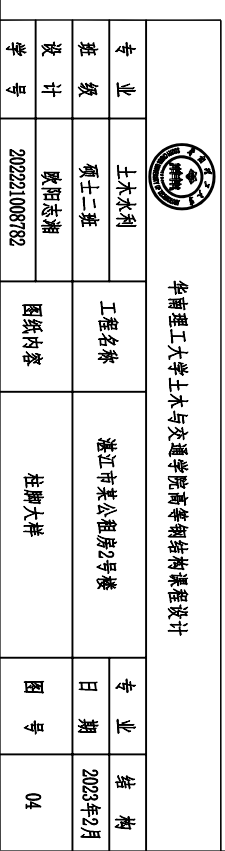 华南理工大学土木与交通学院高等钢结构课程设计
专 业 土木水利 工程名称 湛江市某公租房2号楼 专 业 结 构
班 级 硕士二班 日 期 2023年2月
设 计 欧阳志湘 图纸内容 柱脚大样 图 号 04
学 号 202221008782